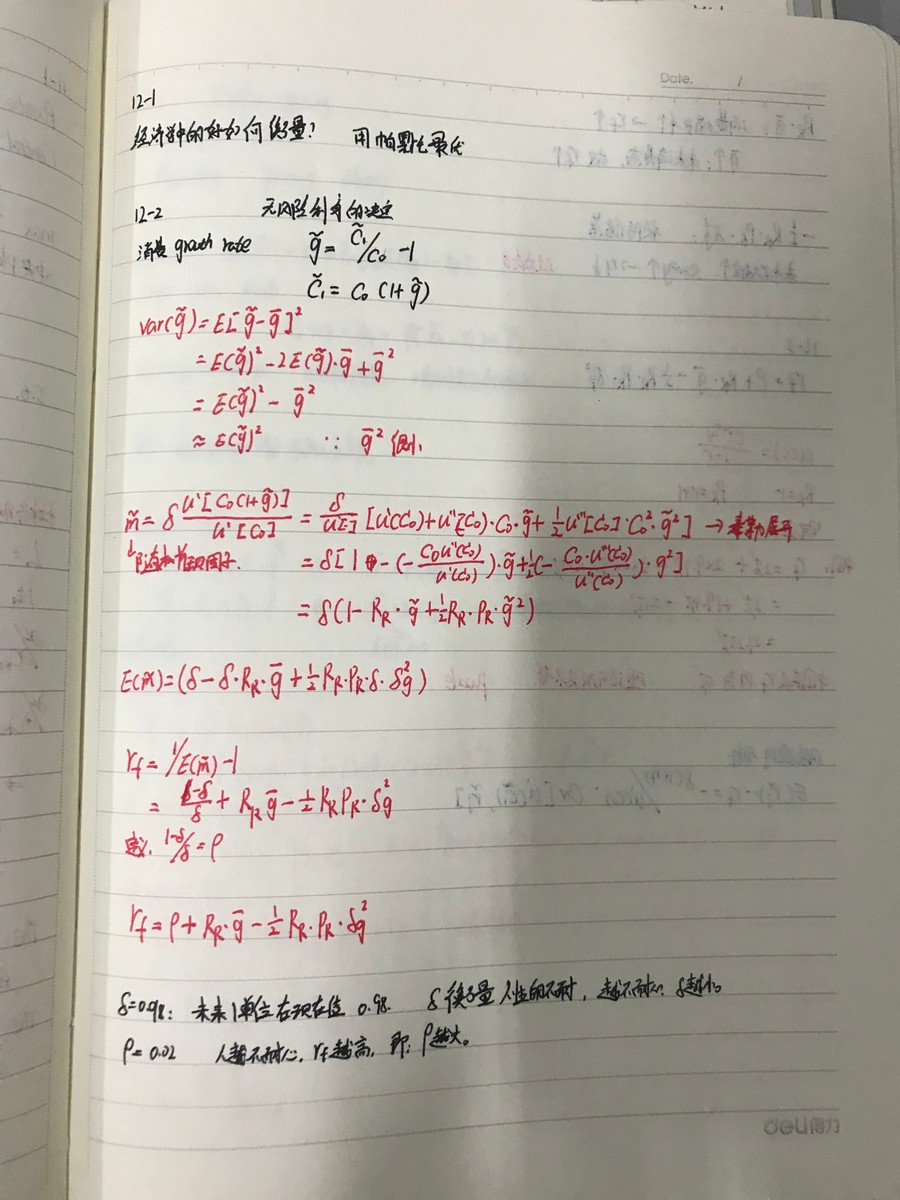 Date. /
12-1
经济学中的好如何衡量? 用帕累托最优
12-2 无风险利率的决定
消费 growth rate g̃ = C̃₁/C₀ -1
C̃₁ = C₀ (1+g̃)
var(g̃) = E[g̃-ḡ]²
= E(g̃)² - 2E(g̃)·ḡ + ḡ²
= E(g̃)² - ḡ²
≈ E(g̃)² ∵ ḡ² 很小
m̃ = δ u'[C₀(1+g̃)]/u'[C₀] = δ/u'[·] [u'(C₀)+u''[C₀)·C₀·g̃+½u'''[C₀]·C₀²·g̃²] → 泰勒展开
随机折现因子. = δ[1 - (-C₀u''(C₀)/u'(C₀))·g̃+½(-C₀·u''(C₀)/u''(C₀))·g²]
= δ(1- R_R · g̃ +½R_R · P_R · g̃²)
E(m̃) = (δ-δ·R_R·ḡ+½R_R·P_R·δ·δ²g̃)
r_f = 1/E(m̃) -1
= 1-δ/δ + R_R ḡ - ½ R_R P_R · δ²g̃
定义. 1-δ/δ = ρ
r_f = ρ + R_R·ḡ - ½ R_R·P_R·δ²g̃
δ=0.98: 未来1单位在现在值 0.98. δ 衡量人性的不耐, 越不耐心 δ越小。
ρ = 0.02 人越不耐心, r_f越高, 即: ρ越大。
deli得力